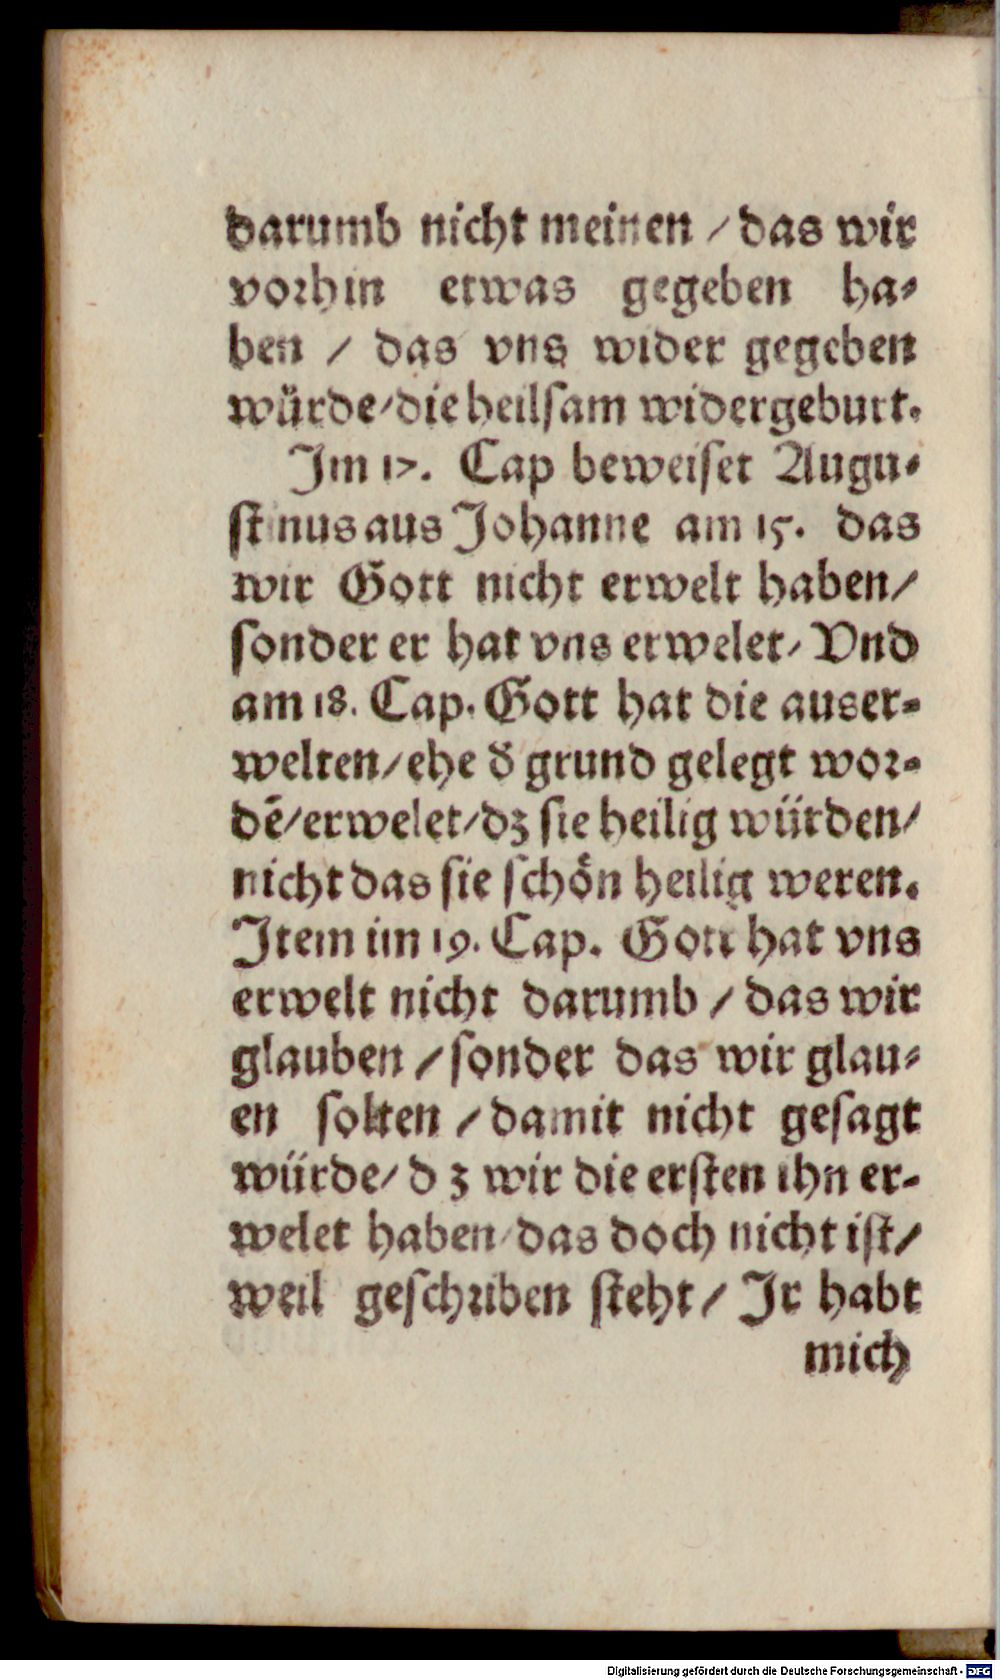 darumb nicht meinen / das wir
vorhin etwas gegeben ha-
ben / das vns wider gegeben
würde / die heilsam widergeburt.
Im 17. Cap beweiset Augu-
stinus aus Johanne am 15. das
wir Gott nicht erwelt haben /
sonder er hat vns erwelet / Vnd
am 18. Cap. Gott hat die auser-
welten / ehe d̕ grund gelegt wor-
dē / erwelet / dz sie heilig würden /
nicht das sie schön heilig weren.
Item im 19. Cap. Gott hat vns
erwelt nicht darumb / das wir
glauben / sonder das wir glau-
en solten / damit nicht gesagt
würde / dz wir die ersten ihn er-
welet haben / das doch nicht ist /
weil geschriben steht / Ir habt
mich
Digitalisierung gefördert durch die Deutsche Forschungsgemeinschaft - DFG